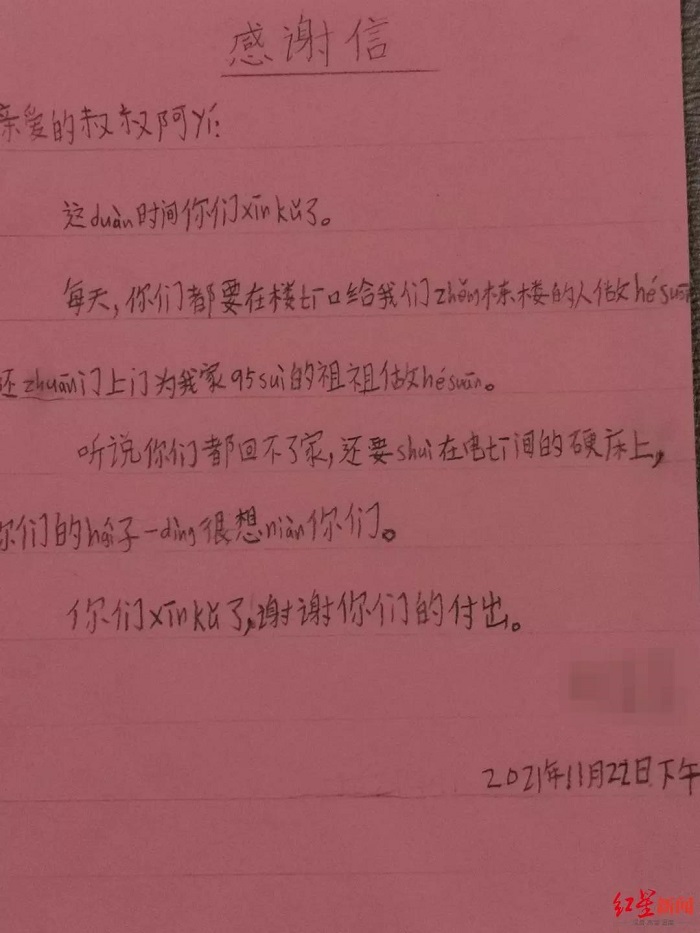 感谢信
亲爱的叔叔阿yí:
这duàn时间你们xīnkǔ了。
每天,你们都要在楼tī口给我们zhěng栋楼的人做hésuān
还zhuān门上门为我家95suì的祖祖做hésuān。
听说你们都回不了家,还要shuì在电tī间的硬床上,
你们的hái子一dìng很想niàn你们。
你们xīnkǔ了,谢谢你们的付出。
2021年11月22日下午
红星新闻